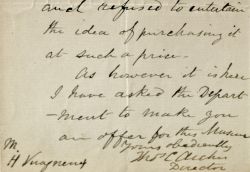 and refused to entertain
the idea of purchasing it
at such a price.
As however it is here
I have asked the Depart
-ment to make you
an offer for this Museum
Yours obediently
Thos C Archer
Director
M
H